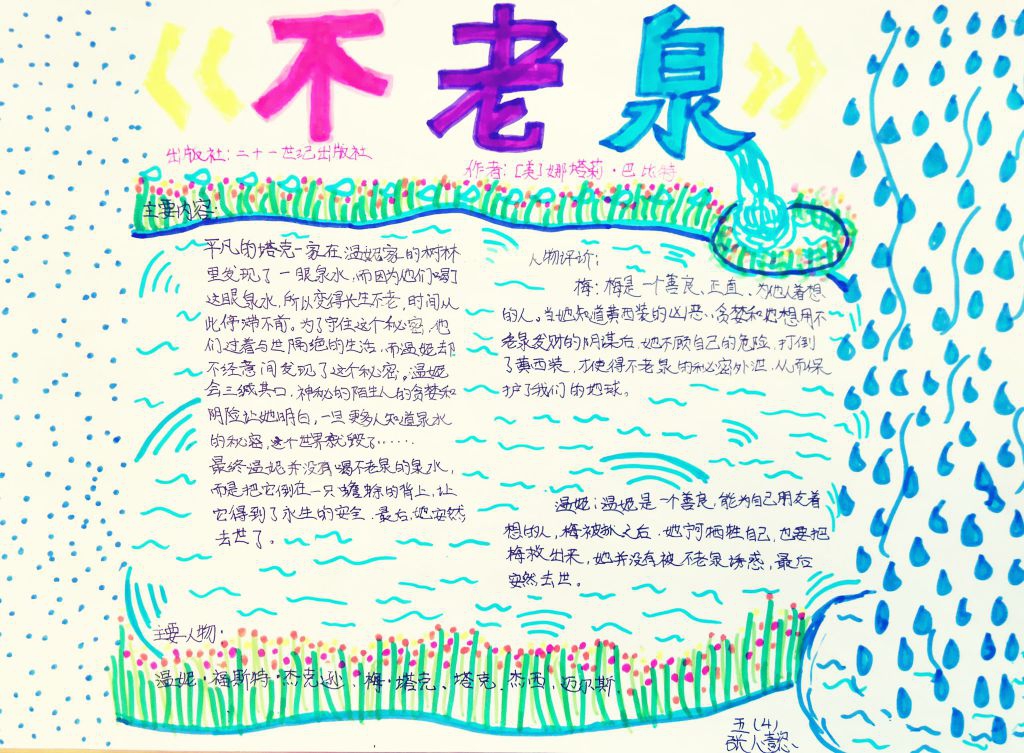 《不老泉》
出版社：二十一世纪出版社
作者：[美]娜塔莉·巴比特
主要内容：
平凡的塔克一家在温妮家的树林
里发现了一眼泉水，而因为他们喝了
这眼泉水，所以变得长生不老，时间从
此停滞不前。为了守住这个秘密，他
们过着与世隔绝的生活，而温妮却
不经意间发现了这个秘密。温妮
会三缄其口，神秘的陌生人的贪婪和
阴险让她明白，一旦更多人知道泉水
的秘密，这个世界就毁了……
最终温妮并没有喝不老泉的泉水，
而是把它倒在一只蟾蜍的背上，让
它得到了永生的安全.最后，她安然
去世了。
人物评价：
梅：梅是一个善良、正直、为他人着想
的人。当她知道黄西装的凶恶、贪婪和他想用不
老泉发财的阴谋后，她不顾自己的危险，打倒
了黄西装，才使得不老泉的秘密外泄，从而保
护了我们的地球。
温妮：温妮是一个善良，能为自己朋友着
想的人，梅被抓之后.她宁牺牲自己，也要把
梅救出来，她并没有被不老泉诱惑，最后
安然去世。
主要人物：
温妮·福斯特·杰克逊、梅·塔克、塔克.杰西，迈尔斯.
五(4)
张人懿